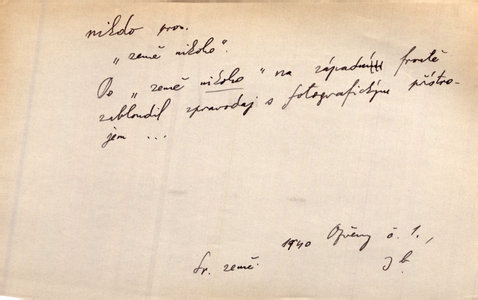 nikdo pron.
„země nikoho".
Do „země nikoho" na západní frontě
zabloudil zpravodaj s fotografickým přístro-
jem ...
1940 č. 1.,
Sv. země.